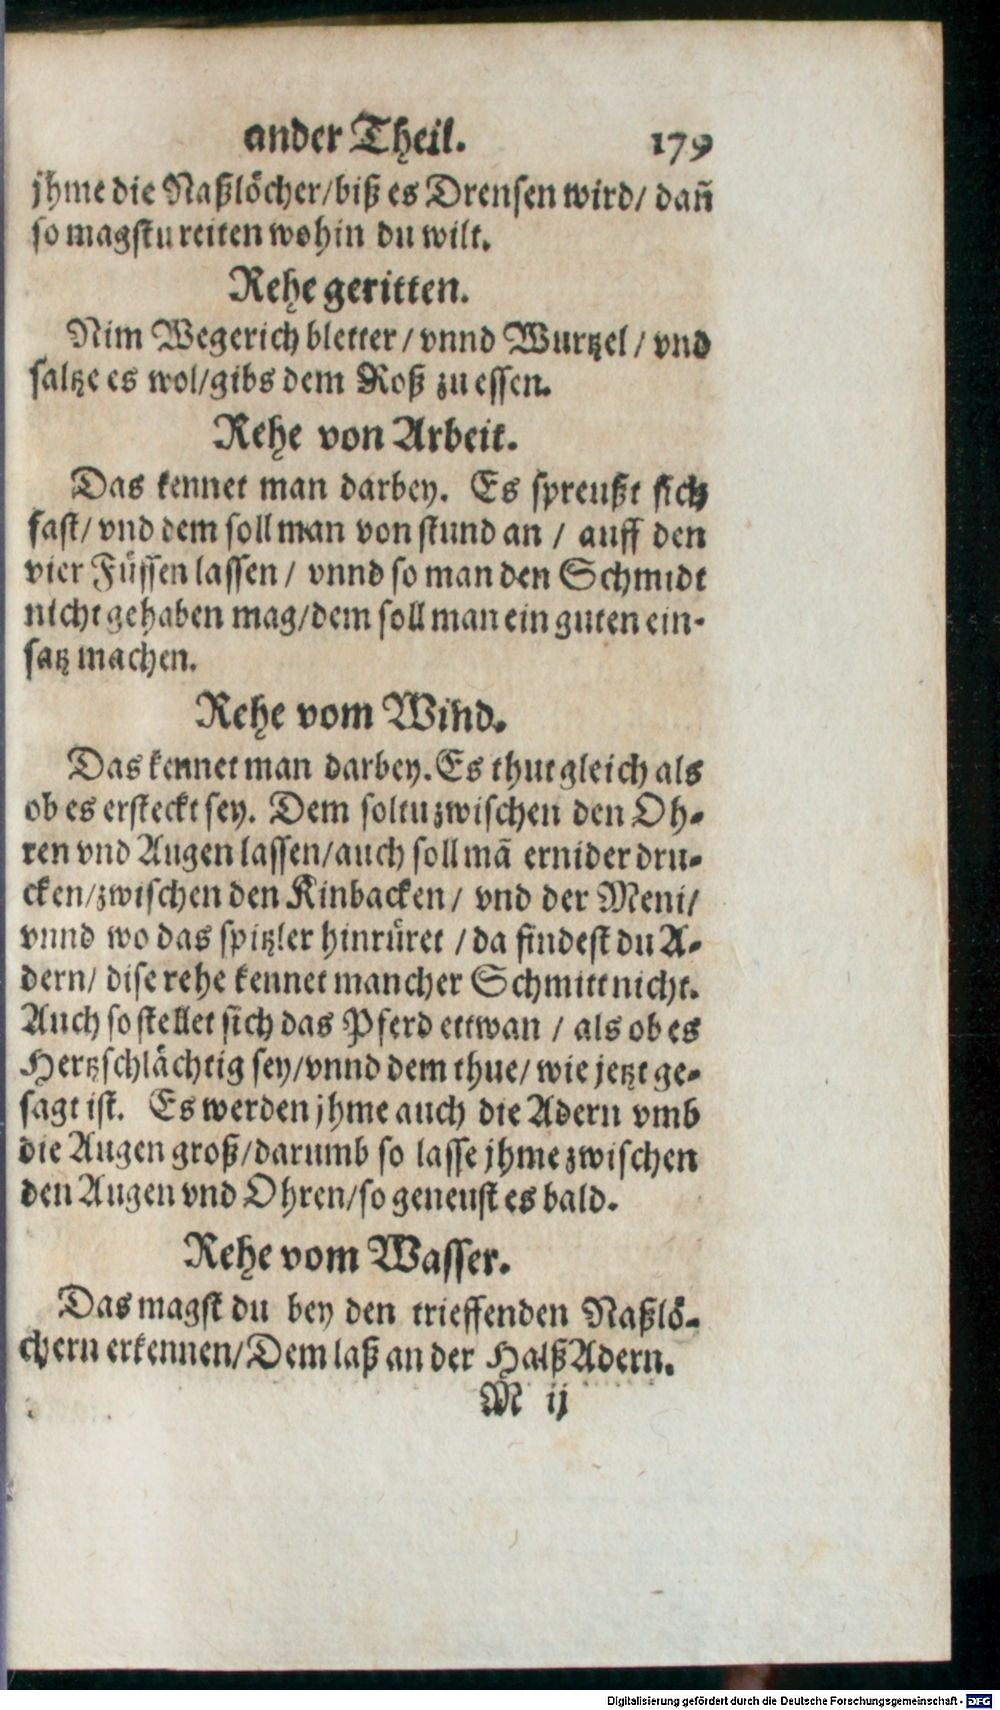 ander Theil. 179
jhme die Naßlöcher/biß es Drensen wird/ dañ
so magstu reiten wohin du wilt.
Rehe geritten.
Nim Wegerich bletter / vnnd Wurtzel / vnd
saltze es wol/gibs dem Roß zu essen.
Rehe von Arbeit.
Das kennet man darbey. Es spreußt sich
fast/ vnd dem soll man von stund an / auff den
vier Füssen lassen / vnnd so man den Schmidt
nicht gehaben mag/dem soll man ein guten ein-
satz machen.
Rehe vom Wind.
Das kennet man darbey. Es thut gleich als
ob es ersteckt sey. Dem soltu zwischen den Oh-
ren vnd Augen lassen/auch soll mā ernider dru-
cken/zwischen den Kinbacken / vnd der Meni/
vnnd wo das spitzler hinrüret / da findest du A-
dern/ dise rehe kennet mancher Schmitt nicht.
Auch so stellet sich das Pferd ettwan / als ob es
Hertzschlächtig sey/vnnd dem thue/ wie jetzt ge-
sagt ist. Es werden jhme auch die Adern vmb
die Augen groß/darumb so lasse jhme zwischen
den Augen vnd Ohren/so geneust es bald.
Rehe vom Wasser.
Das magst du bey den trieffenden Naßlö-
chern erkennen/Dem laß an der Halß Adern.
M ij
Digitalisierung gefördert durch die Deutsche Forschungsgemeinschaft - DFG